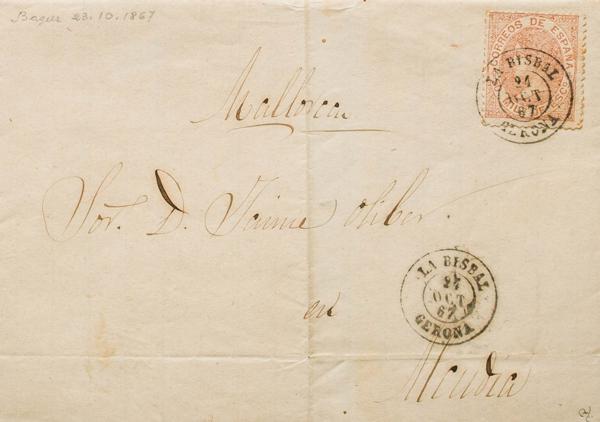 Bagur 23.10.1867
CORREOS DE ESPAÑA
LA BISBAL
24
OCT
67
GERONA
Mallorca
Sor. D. Jaime Oliver.
en
LA BISBAL
24
OCT
67
GERONA
Alcudia